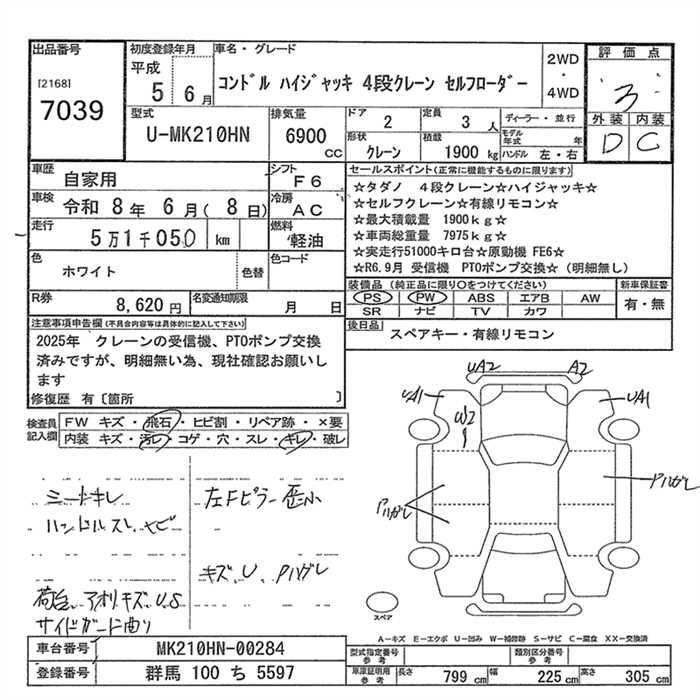 出品番号
[2168]
7039
初度登録年月
平成
5 6月
車名・グレード
コンドル ハイジャッキ 4段クレーン セルフローダー
2WD
・
4WD
評価点
3
外装 内装
D C
型式
U-MK210HN
排気量
6900
CC
ドア 2
定員 3 人
形状 クレーン
積載 1900 kg
ディーラー・並行
モデル年式 年
ハンドル 左・右
車歴 自家用
シフト F6
車検 令和 8年 6月( 8日)
冷房 AC
走行 5万1千050 km
燃料 軽油
色 ホワイト
色替
色コード
R券 8,620円
名変通知期限 月 日
セールスポイント(正常に機能するものに限ります)
☆タダノ 4段クレーン☆ハイジャッキ☆
☆セルフクレーン☆有線リモコン☆
☆最大積載量 1900kg☆
☆車両総重量 7975kg☆
☆実走行51000キロ台☆原動機 FE6☆
☆R6.9月 受信機 PTOポンプ交換☆ (明細無し)
装備品 (純正品に限り○をつけてください)
PS PW ABS エアB AW
SR ナビ TV カワ
新車保証書
有・無
後日品
スペアキー・有線リモコン
注意事項申告欄(不具合内容等は具体的に記入して下さい)
2025年 クレーンの受信機、PTOポンプ交換
済みですが、明細無い為、現社確認お願いし
ます
修復歴 有〔箇所 〕
検査員記入欄
FW キズ・飛石・ヒビ割・リペア跡・×要
内装 キズ・汚レ・コゲ・穴・スレ・キレ・破レ
シートキレ
ハンドルスレ、ヤビ
左Fピラー歪小
キズ、U、Pハガレ
荷台、アオリキズ、U、S
サイドガード曲り
UA2 A2
UA1 UA1
W2
Pハガレ
Pハガレ
スペア
A-キズ E-エクボ U-凹み W-補修跡 S-サビ C-腐食 XX-交換済
車台番号 MK210HN-00284
登録番号 群馬 100 ち 5597
型式指定番号 参考
類別区分番号 参考
車庫証明用 参考
長さ 799 cm
幅 225 cm
高さ 305 cm